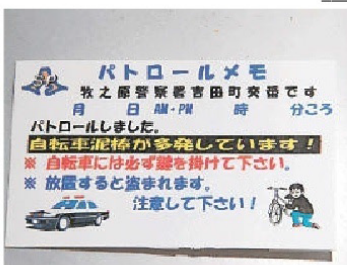 パトロールメモ
牧之原警察署吉田町交番です
月 日 AM・PM 時 分ころ
パトロールしました。
自転車泥棒が多発しています！
※ 自転車には必ず鍵を掛けて下さい。
※ 放置すると盗まれます。
注意して下さい！